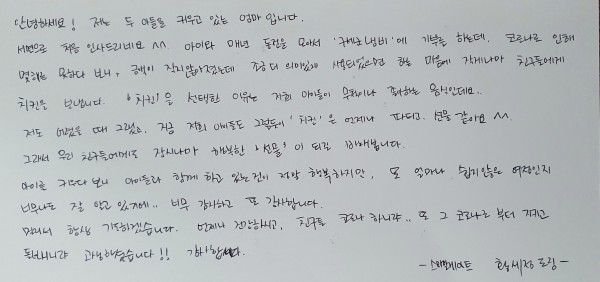 안녕하세요! 저는 두 아들을 키우고 있는 엄마 입니다.
서면으로 처음 인사드리네요 ^^. 아이와 매년 동전을 모아서 '구세군 냄비'에 기부를 하는데, 코로나로 인해
몇해를 못하다 보니, 금액이 작지않아졌는데 좀 더 의미있게 사용되었으면 하는 마음에 작게나마 친구들에게
치킨을 보냅니다. '치킨'을 선택한 이유는 저희 아이들이 무척이나 좋아하는 음식인데요..
저도 어렸을 때 그랬고, 지금 저희 아이들도 그렇듯이 '치킨'은 언제나 파티고, 선물 같아요 ^^.
그래서 우리 친구들에게도 잠시나마 행복한 '선물'이 되길 바래봅니다.
아이를 키우다 보니 아이들과 함께 하고 있는것이 정말 행복하지만, 또 얼마나 쉽지 않은 여정인지
너무나도 잘 알고 있기에.. 너무 감사하고 또 감사합니다.
멀리서 항상 기도하겠습니다. 언제나 건강하시고, 친구들 코로나 하니랴.. 또 그 코로나로 부터 지키고
돌보시니랴 고생하셨습니다!! 감사합니다.